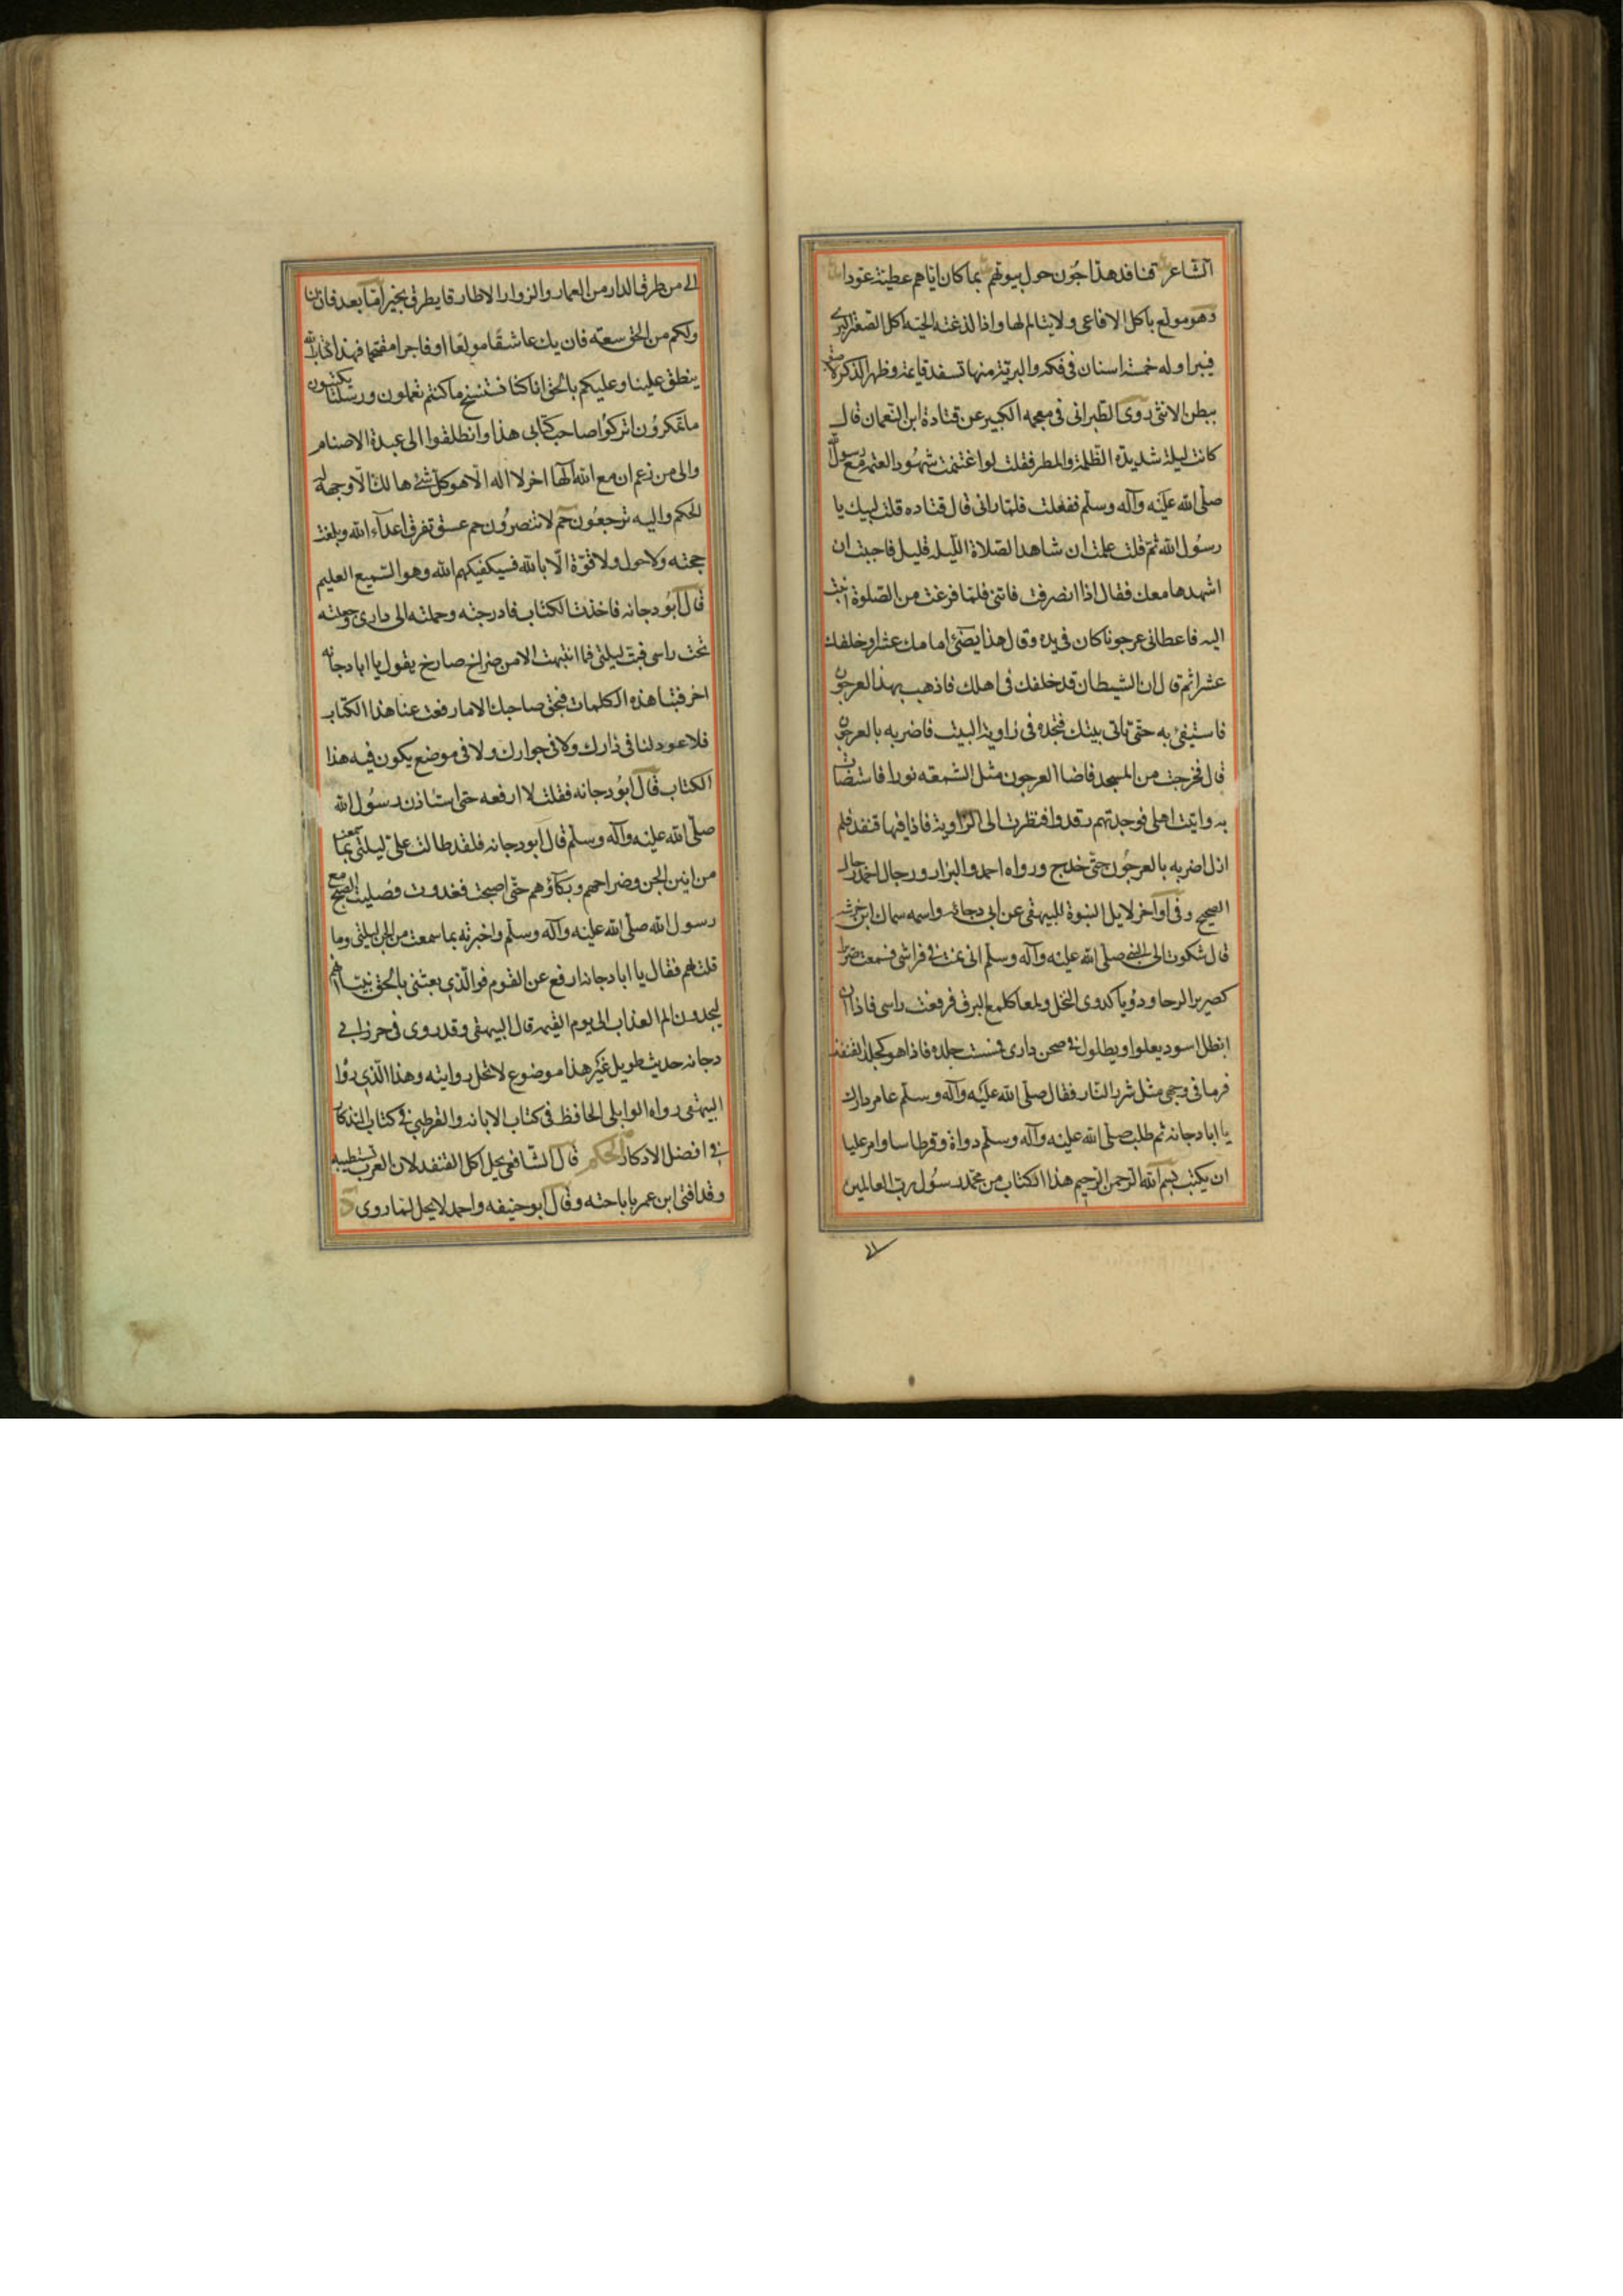 الشاعر قنافد هداجون حول بيوتهم بما كان اياهم عطية عودا
وهو مولع باكل الافاعى ولا يتالم لها واذا لذغته الحيّه اكل الصعتر البرى
فيبرا وله خمسة اسنان فى فكه والبرية منها تسفد قايمة وظهر الذكر لاصق
ببطن الانثى روى الطبرانى فى معجمه الكبير عن قتادة ابن النعمان قال
كانت ليلة شديدة الظلمة والمطر فقلت لو اغتنمت شهود العتمة مع رسول الله
صلّى الله عليه وآله وسلّم ففعلت فلمّا رانى قال قتاده قلت لبيك يا
رسول الله ثم قلت علمت ان شاهد الصّلاة اللّيلة قليل فاحببت ان
اشهدها معك فقال اذا انصرفت فاتنى فلمّا فرغت من الصّلوة اتيت
اليه فاعطانى عرجونا كان فى يده وقال هذا يضئ امامك عشرا وخلفك
عشرا ثم قال ان الشيطان قد خلفك فى اهلك فاذهب بهذا العرجون
فاستضئ به حتى تاتى بيتك فتجده فى زاوية البيت فاضربه بالعرجون
قال فخرجت من المسجد فاضا العرجون مثل الشمعه نورا فاستضات
به واتيت اهلى فوجدتهم رقدوا فنظرت الى الزاوية فاذا فيها قنفد فلم
ازل اضربه بالعرجون حتى خرج ورواه احمد والبزار ورجال احمد رجال
الصحيح وفى اواخر لايل النبوة للبيهقى عن ابى دجانه واسمه سماك ابن خرشه
قال شكوت الى النبى صلّى الله عليه وآله وسلّم انى نمت فى فراشى فسمعت صريرا
كصرير الرحا ودويا كدوى النخل ولمعا كلمع البرق فرفعت راسى فاذا ان
ابظل اسود يعلوا ويطلول فى صحن دارى فمست جلده فاذا هو كجلد القنفذ
فرمانى وجهى مثل شرر النّار فقال صلّى الله عليه وآله وسلّم عامر دارك
يا ابا دجانه ثم طلب صلّى الله عليه وآله وسلّم دواة وقرطاسا وامر عليا
ان يكتب بسم الله الرحمن الرحيم هذا الكتاب من محمّد رسول رب العالمين
الى
الى من طرق الدار من العمار والزوار الا طارقا يطرق بخير امّا بعد فان لنا
ولكم من الحق سعة فان يك عاشقا مولعا او فاجرا مقتحما فهذا كتاب الله
ينطق علينا وعليكم بالحق انا كنا نستنسخ ما كنتم تعملون ورسلنا يكتبون
ما تمكرون اتركوا صاحب كتابى هذا وانطلقوا الى عبدة الاصنام
والى من زعم ان مع الله الها اخر لا اله الّا هو كلّ شئ هالك الّا وجهه له
الحكم واليه ترجعون حم لا تنصرون حم عسق تفرق اعدآء الله وبلغت
حجته ولا حول ولا قوّة الّا بالله فسيكفيكهم الله وهو السّميع العليم
قال ابو دجانه فاخذت الكتاب فادرجته وحملته الى دارى وجعلته
تحت راسى فبت ليلتى فما انتبهت الا من صراخ صارخ يقول يا ابا دجانه
احرقتنا هذه الكلمات فبحق صاحبك الا ما رفعت عنا هذا الكتاب
فلا عود لنا فى دارك ولا فى جوارك ولا فى موضع يكون فيه هذا
الكتاب قال ابو دجانه فقلت لا ارفعه حتى استاذن رسول الله
صلّى الله عليه وآله وسلّم قال ابو دجانه فلقد طالت علىّ ليلتى بما سمعت
من انين الجن وضراحهم وبكاؤهم حتى اصبحت فغدوت وصليت الصبح مع
رسول الله صلّى الله عليه وآله وسلّم واخبرته بما سمعت من الجن ليلتى وما
قلت لهم فقال يا ابا دجانه ارفع عن القوم فوالذى بعثنى بالحق نبيّا انهم
ليجدون الم العذاب الى يوم القيمة قال البيهقى وقد روى فى حرز ابى
دجانه حديث طويل غير هذا موضوع لا تحل روايته وهذا الّذى رواه
البيهقى رواه الوابلى الحافظ فى كتاب الابانه والقرطبى فى كتاب التذكار
فى افضل الاذكار الحكم قال الشافعى يحل اكل القنفد لان العرب تستطيبه
وقد افتى ابن عمر باباحته وقال ابو حنيفه واحمد لا يحل لما روى